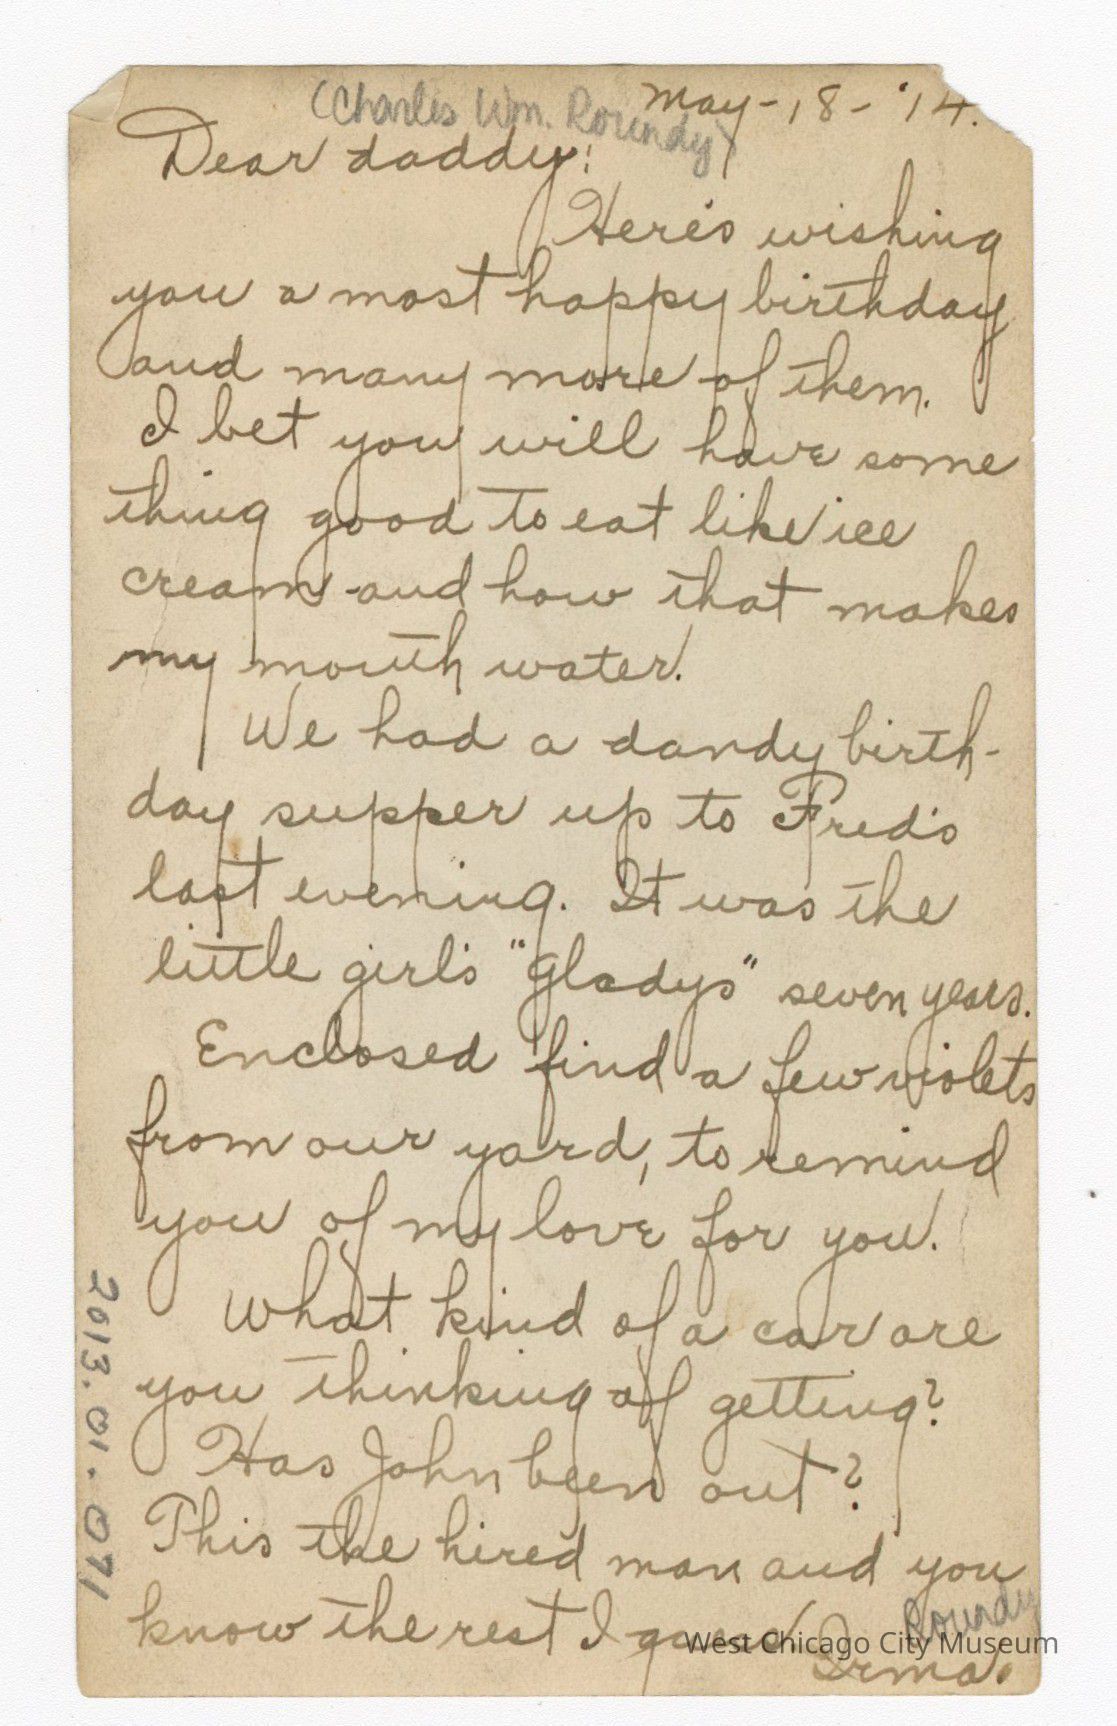 (Charles Wm. Roundy)
May - 18 - '14.
Dear daddy:
Here's wishing
you a most happy birthday
and many more of them.
I bet you will have some
thing good to eat like ice
cream and how that makes
my mouth water.
We had a dandy birth-
day supper up to Fred's
last evening. It was the
little girl's "Gladys" seven years.
Enclosed find a few violets
from our yard, to remind
you of my love for you.
What kind of a car are
you thinking of getting?
Has John been out?
This the hired man and you
know the rest I guess
Roundy
Irma.
2013.01.071
West Chicago City Museum